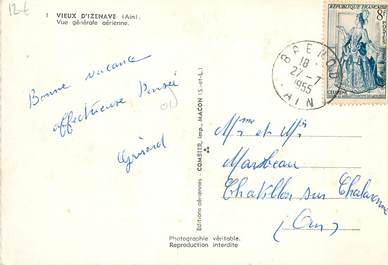 12€
1 VIEUX D'IZENAVE (Ain)
Vue générale aérienne.
Bonne vacance
affectueuse Pensée
Gérard
Editions aériennes - COMBIER, Imp. MACON (S.-et-L.)
BRENOD
18
27-7
1955
AIN
REPUBLIQUE FRANÇAISE
8F
Mme et Mr
Marsbeau
Chatillon sur Chalaronne
(Ain)
Photographie véritable.
Reproduction interdite